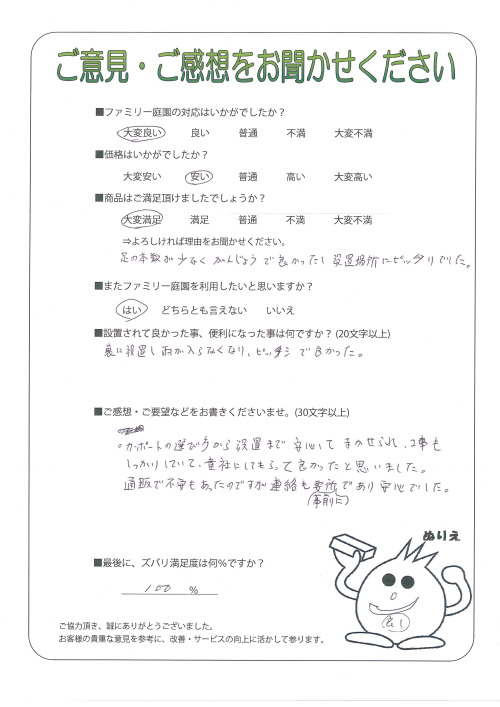 ご意見・ご感想をお聞かせください
■ファミリー庭園の対応はいかがでしたか？
大変良い 良い 普通 不満 大変不満
■価格はいかがでしたか？
大変安い 安い 普通 高い 大変高い
■商品はご満足頂けましたでしょうか？
大変満足 満足 普通 不満 大変不満
⇒よろしければ理由をお聞かせください。
足の本数が少なく がんじょうで良かったし 設置場所にピッタリでした。
■またファミリー庭園を利用したいと思いますか？
はい どちらとも言えない いいえ
■設置されて良かった事、便利になった事は何ですか？(20文字以上)
裏に設置し雨が入らなくなり、ピッタシで良かった。
■ご感想・ご要望などをお書きくださいませ。(30文字以上)
・カーポートの選び方から設置まで安心してまかせられ、工事も
しっかりしていて、貴社にしてもらって良かったと思いました。
通販で不安もあったのですが連絡も であり安心でした。
(事前に)
■最後に、ズバリ満足度は何％ですか？
100 %
ぬりえ
ご協力頂き、誠にありがとうございました。
お客様の貴重な意見を参考に、改善・サービスの向上に活かして参ります。